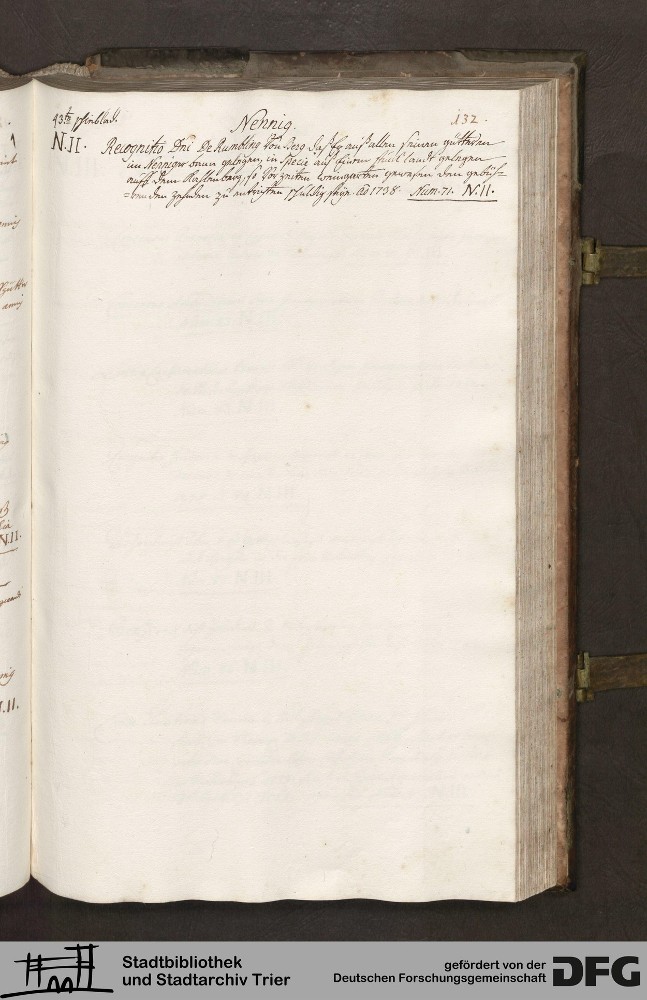 43te
Nennig.
132.
N.II.
Recognitio Dni De Rumling von Berg daß Er auß allen seinen gütteren
im Nenniger bann gelegen, in specie auß einem stück landt gelegen
auff dem Raßlenberg, so vor zeiten weingarten gewesen den gebüh-
=renden zehnden zu entrichten schuldig seye. de 1738. Num. 71. N.II.
N.II.
Stadtbibliothek
und Stadtarchiv Trier
gefördert von der
Deutschen Forschungsgemeinschaft
DFG